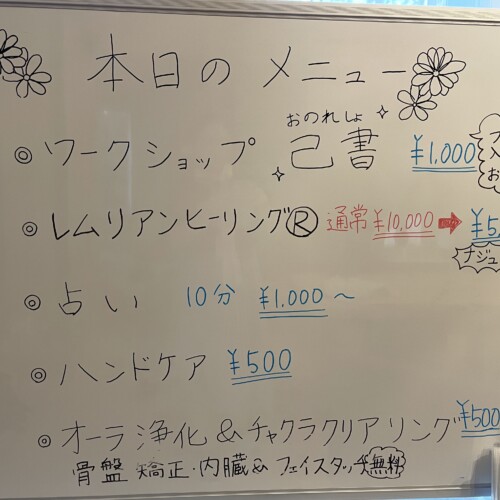 本日のメニュー
おのれしょ
◎ワークショップ 己書 ¥1,000
◎レムリアンヒーリング® 通常 ¥10,000 ➡ ¥5,
ナジュ
◎占い 10分 ¥1,000～
◎ハンドケア ¥500
◎オーラ浄化&チャクラクリアリング ¥500
骨盤矯正・内臓&フェイスタッチ無料